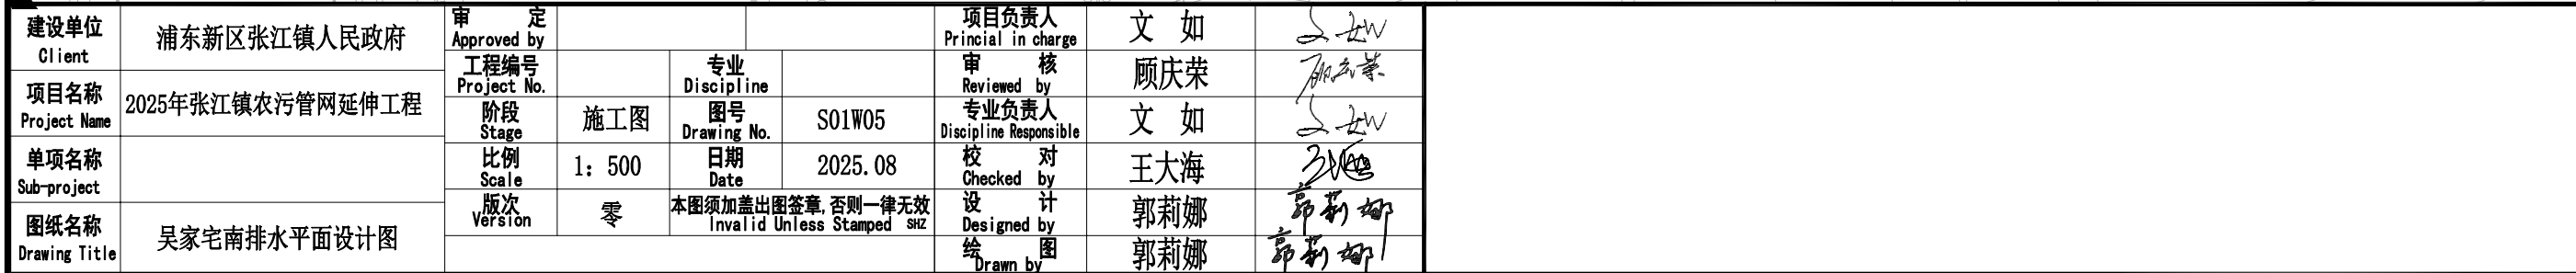 建设单位
Client
浦东新区张江镇人民政府
项目名称
Project Name
2025年张江镇农污管网延伸工程
单项名称
Sub-project
图纸名称
Drawing Title
吴家宅南排水平面设计图
审 定
Approved by
工程编号
Project No.
专业
Discipline
阶段
Stage
施工图
图号
Drawing No.
S01W05
比例
Scale
1: 500
日期
Date
2025.08
版次
Version
零
本图须加盖出图签章,否则一律无效
Invalid Unless Stamped SHZ
项目负责人
Princial in charge
文 如
文如
审 核
Reviewed by
顾庆荣
顾庆荣
专业负责人
Discipline Responsible
文 如
文如
校 对
Checked by
王大海
设 计
Designed by
郭莉娜
郭莉娜
绘 图
Drawn by
郭莉娜
郭莉娜